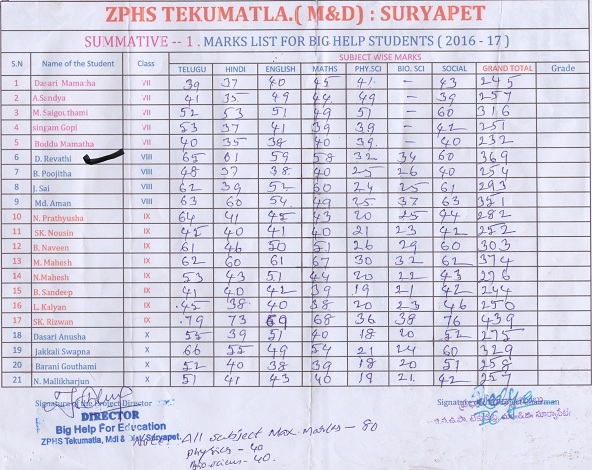 ZPHS TEKUMATLA.( M&D) : SURYAPET
SUMMATIVE -- 1 . MARKS LIST FOR BIG HELP STUDENTS ( 2016 - 17 )
S.N Name of the Student Class SUBJECT WISE MARKS
TELUGU HINDI ENGLISH MATHS PHY.SCI BIO. SCI SOCIAL GRAND TOTAL Grade
1 Dasari Mamatha VII 39 37 40 45 41 - 43 245
2 A.Sandya VII 41 35 49 44 49 - 39 257
3 M. Saigouthami VII 52 53 51 49 51 - 60 316
4 singam Gopi VII 53 37 41 39 39 - 42 251
5 Boddu Mamatha VII 40 35 38 40 39 - 40 232
6 D. Revathi VIII 65 61 59 58 32 34 60 369
7 B. Poojitha VIII 48 37 38 40 25 26 40 254
8 J. Sai VIII 62 39 52 60 24 25 61 293
9 Md. Aman VIII 63 60 54 49 25 37 63 351
10 N. Prathyusha IX 64 41 45 43 20 25 44 282
11 SK. Nousin IX 45 40 41 40 21 23 42 252
12 B. Naveen IX 61 46 50 51 26 29 60 303
13 M. Mahesh IX 62 60 61 67 30 32 62 374
14 N.Mahesh IX 53 43 51 44 20 22 43 276
15 B. Sandeep IX 41 40 42 39 19 21 42 244
16 L. Kalyan IX 45 38 40 38 20 23 46 250
17 SK. Rizwan IX 79 73 69 68 36 38 76 439
18 Dasari Anusha X 55 39 51 40 18 20 52 275
19 Jakkali Swapna X 66 55 49 54 21 24 60 329
20 Barani Gouthami X 52 40 38 39 18 20 51 258
21 N. Mallikharjun X 51 41 43 40 19 21 42 257
Signature of the Project Director Signature
DIRECTOR
Big Help For Education
ZPHS Tekumatla, Mdl & Suryapet.
Note: All subject Max. Marks - 80
physics - 40
Bioscience - 40.